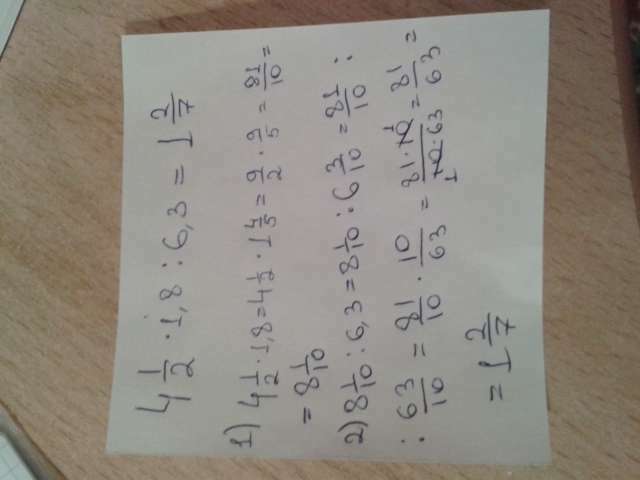 4 1/2 · 1,8 : 6,3 = 1 2/7
1) 4 1/2 · 1,8 = 4 1/2 · 1 4/5 = 9/2 · 9/5 = 81/10 =
= 8 1/10
2) 8 1/10 : 6,3 = 8 1/10 : 6 3/10 = 81/10 :
: 63/10 = 81/10 · 10/63 = 81·10 1/1 10·63 = 81/63 =
= 1 2/7